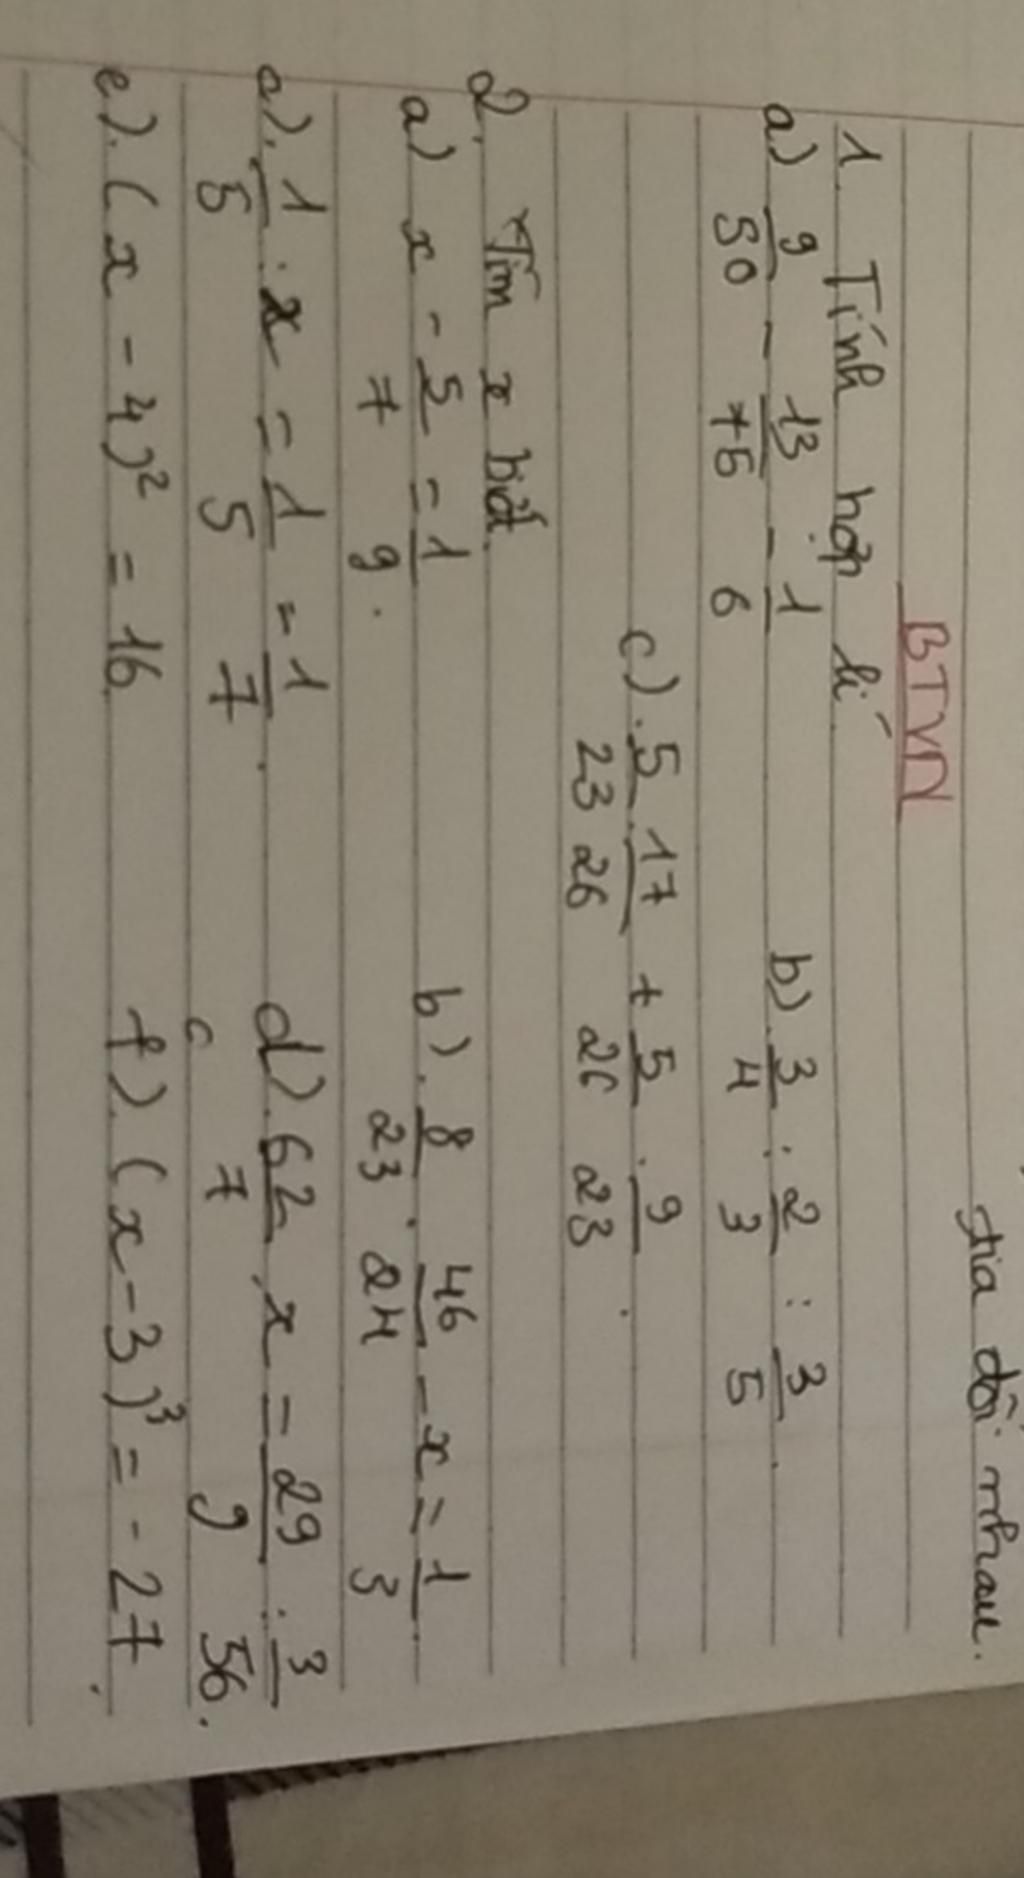 tia đối nhau.
BTVN
1. Tính hợp lí
a) 9/50 - 13/75 - 1/6 b) 3/4 : 2/3 : 3/5.
c) 5/23 . 17/26 + 5/26 . 9/23.
2. Tìm x biết.
a) x - 5/7 = 1/9. b) 8/23 . 46/24 - x = 1/3.
c) 1/5 : x = 1/5 - 1/7. d) 62/7 . x = 29/9 : 3/56.
e) (x - 4)² = 16. f) (x - 3)³ = - 27.